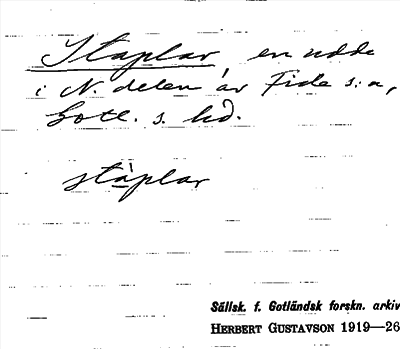 Staplar, en udde
i N. delen av Fide s:n,
Gotl. s. hd.
stàplar
Sällsk. f. Gotländsk forskn. arkiv
HERBERT GUSTAVSON 1919—26